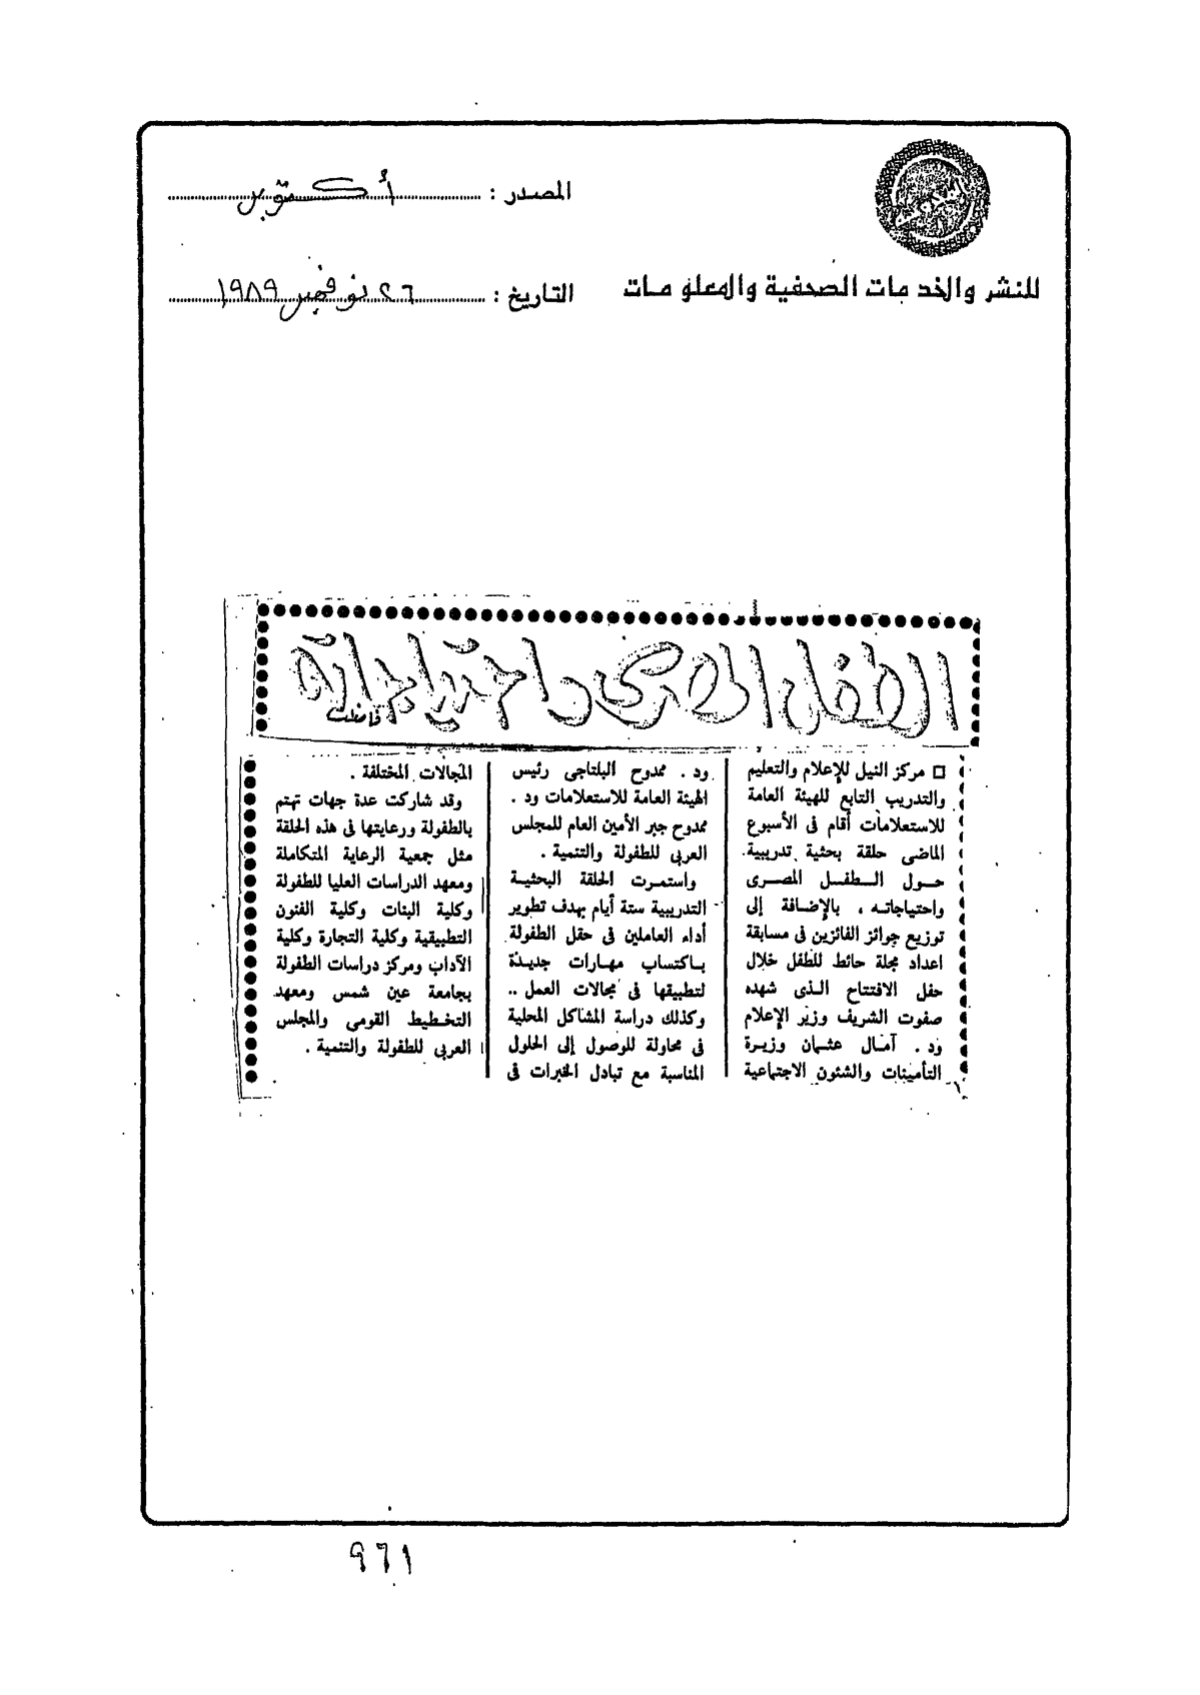 المصدر : أكتوبر
للنشر والخدمات الصحفية والمعلومات
التاريخ : ٢٦ نوفمبر ١٩٨٩
الطفل المصرى واحتياجاته
□ مركز النيل للإعلام والتعليم
والتدريب التابع للهيئة العامة
للاستعلامات أقام فى الأسبوع
الماضى حلقة بحثية تدريبية
حول الطفل المصرى
واحتياجاته ، بالإضافة إلى
توزيع جوائز الفائزين فى مسابقة
اعداد مجلة حائط للطفل خلال
حفل الافتتاح الذى شهده
صفوت الشريف وزير الإعلام
ود . آمال عثمان وزيرة
التأمينات والشئون الاجتماعية
ود . ممدوح البلتاجى رئيس
الهيئة العامة للاستعلامات ود .
ممدوح جبر الأمين العام للمجلس
العربى للطفولة والتنمية .
واستمرت الحلقة البحثية
التدريبية ستة أيام بهدف تطوير
أداء العاملين فى حقل الطفولة
باكتساب مهارات جديدة
لتطبيقها فى مجالات العمل ..
وكذلك دراسة المشاكل المحلية
فى محاولة للوصول إلى الحلول
المناسبة مع تبادل الخبرات فى
المجالات المختلفة .
وقد شاركت عدة جهات تهتم
بالطفولة ورعايتها فى هذه الحلقة
مثل جمعية الرعاية المتكاملة
ومعهد الدراسات العليا للطفولة
وكلية البنات وكلية الفنون
التطبيقية وكلية التجارة وكلية
الآداب ومركز دراسات الطفولة
بجامعة عين شمس ومعهد
التخطيط القومى والمجلس
العربى للطفولة والتنمية .
٩٦١